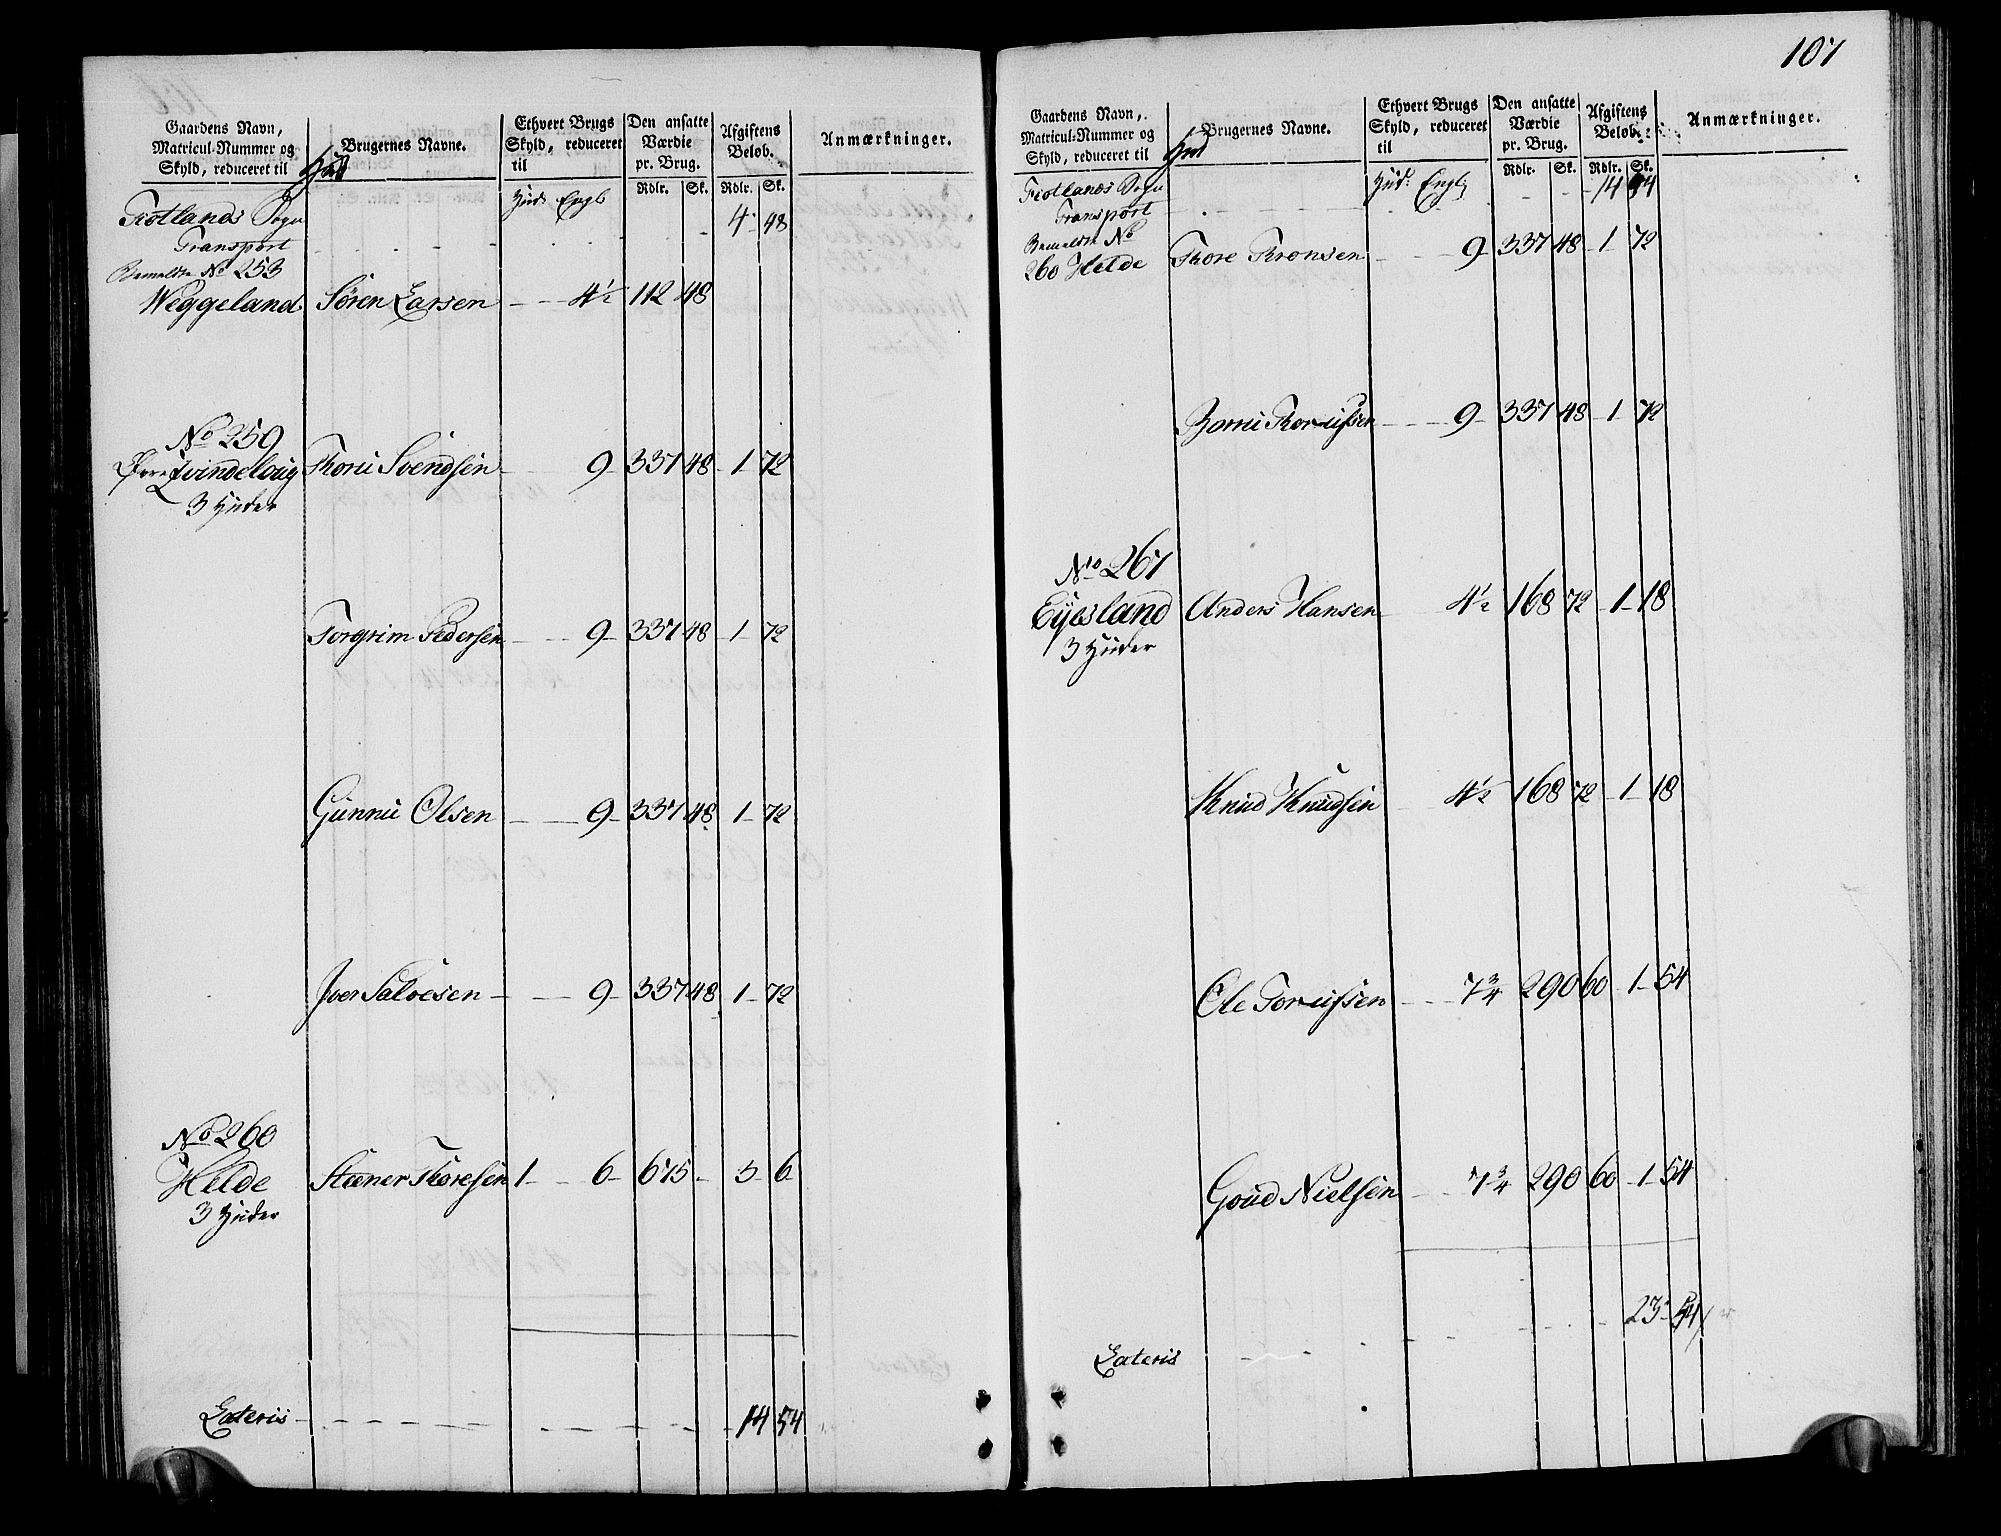 Gaardens Navn, Matricul-Nummer og Skyld, reduceret til Hud
Brugernes Navne.
Ethvert Brugs Skyld, reduceret til
Den ansatte Værdie pr. Brug.
Afgiftens Beløb.
Anmærkninger.
Rdlr. Sk. Rdlr. Sk.
Fiotlands Sogn Hud: Engl
Transport - - - - - - 4 - 48
Bemeldte No 253
Weggeland Søren Larsen - - 4½ 112 48
No 259
Qvindelaug Thore Svendsen - - 9 - 337 48 - 1 - 72
3 Huder
Torgrim Pedersen - - 9 - 337 48 - 1 - 72
Gunnu Olsen - - 9 - 337 48 - 1 - 72
Joer Salvesen - - 9 - 337 48 - 1 - 72
No 260
Helde Steener Thoresen 1 - - 6 - 675 - 3 - 6
3 Huder
Lateris - - - - - - 14 54
107
Gaardens Navn, Matricul-Nummer og Skyld, reduceret til Hud
Brugernes Navne.
Ethvert Brugs Skyld, reduceret til
Den ansatte Værdie pr. Brug.
Afgiftens Beløb.
Anmærkninger.
Rdlr. Sk. Rdlr. Sk.
Fiotlands Sogn Hud: Engl
Transport - - - - - - 14 54
Bemeldte No
260 Helde Thore Tronsen - - 9 - 337 48 - 1 - 72
Torressen - - 9 - 337 48 - 1 72
No 267
Eyesland Anders Hansen - 4½ 168 72 - 1 - 18
3 Huder
Knud Knudsen - 4½ 168 72 - 1 - 18
Ole Torressen - - 7¾ 290 60 - 1 - 54
Goud Nielsen - - 7¾ 290 60 - 1 - 54
23 - 54
Lateris